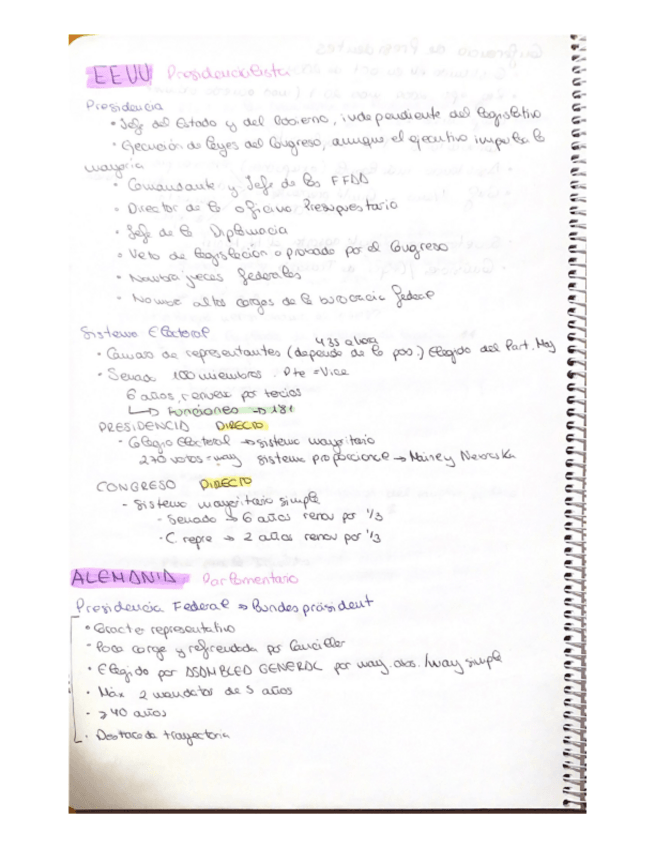 EEUU Presidencialista
Presidencia
• Jefe del Estado y del Gobierno, independiente del legislativo
• Ejecución de leyes del Congreso, aunque el ejecutivo imparte la
mayoría
• Comandante y Jefe de las FFAA
• Director de la oficina Presupuestaria
• Jefe de la Diplomacia
• Veto de legislación aprobada por el Congreso
• Nombra jueces federales
• Nombra altos cargos de la burocracia federal
Sistema Electoral
435 ahora
• Cámara de representantes (depende de la pob.) Elegido del Part. May
• Senado 100 miembros. Pte = Vice
6 años, renueva por tercios
↳ Funciones → 181
PRESIDENCIA DIRECTO
- Colegio Electoral → sistema mayoritario
270 votos = may sistema proporcional → Maine y Nebraska
CONGRESO DIRECTO
- Sistema mayoritario simple
- Senado → 6 años renov por 1/3
- C repre → 2 años renov por 1/3
ALEMANIA Parlamentario
Presidencia Federal → Bundespräsident
• Caracter representativo
- Poca carga y refrendada por Canciller
• Elegido por ASAMBLEA GENERAL por may. abs. / may simple
• Máx 2 mandatos de 5 años
- ≥ 40 años
• Destacada trayectoria